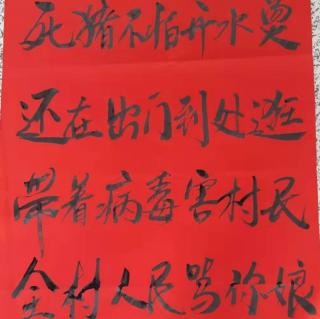 死猪不怕开水烫
还在出门到处逛
带着病毒害村民
全村人民骂你娘